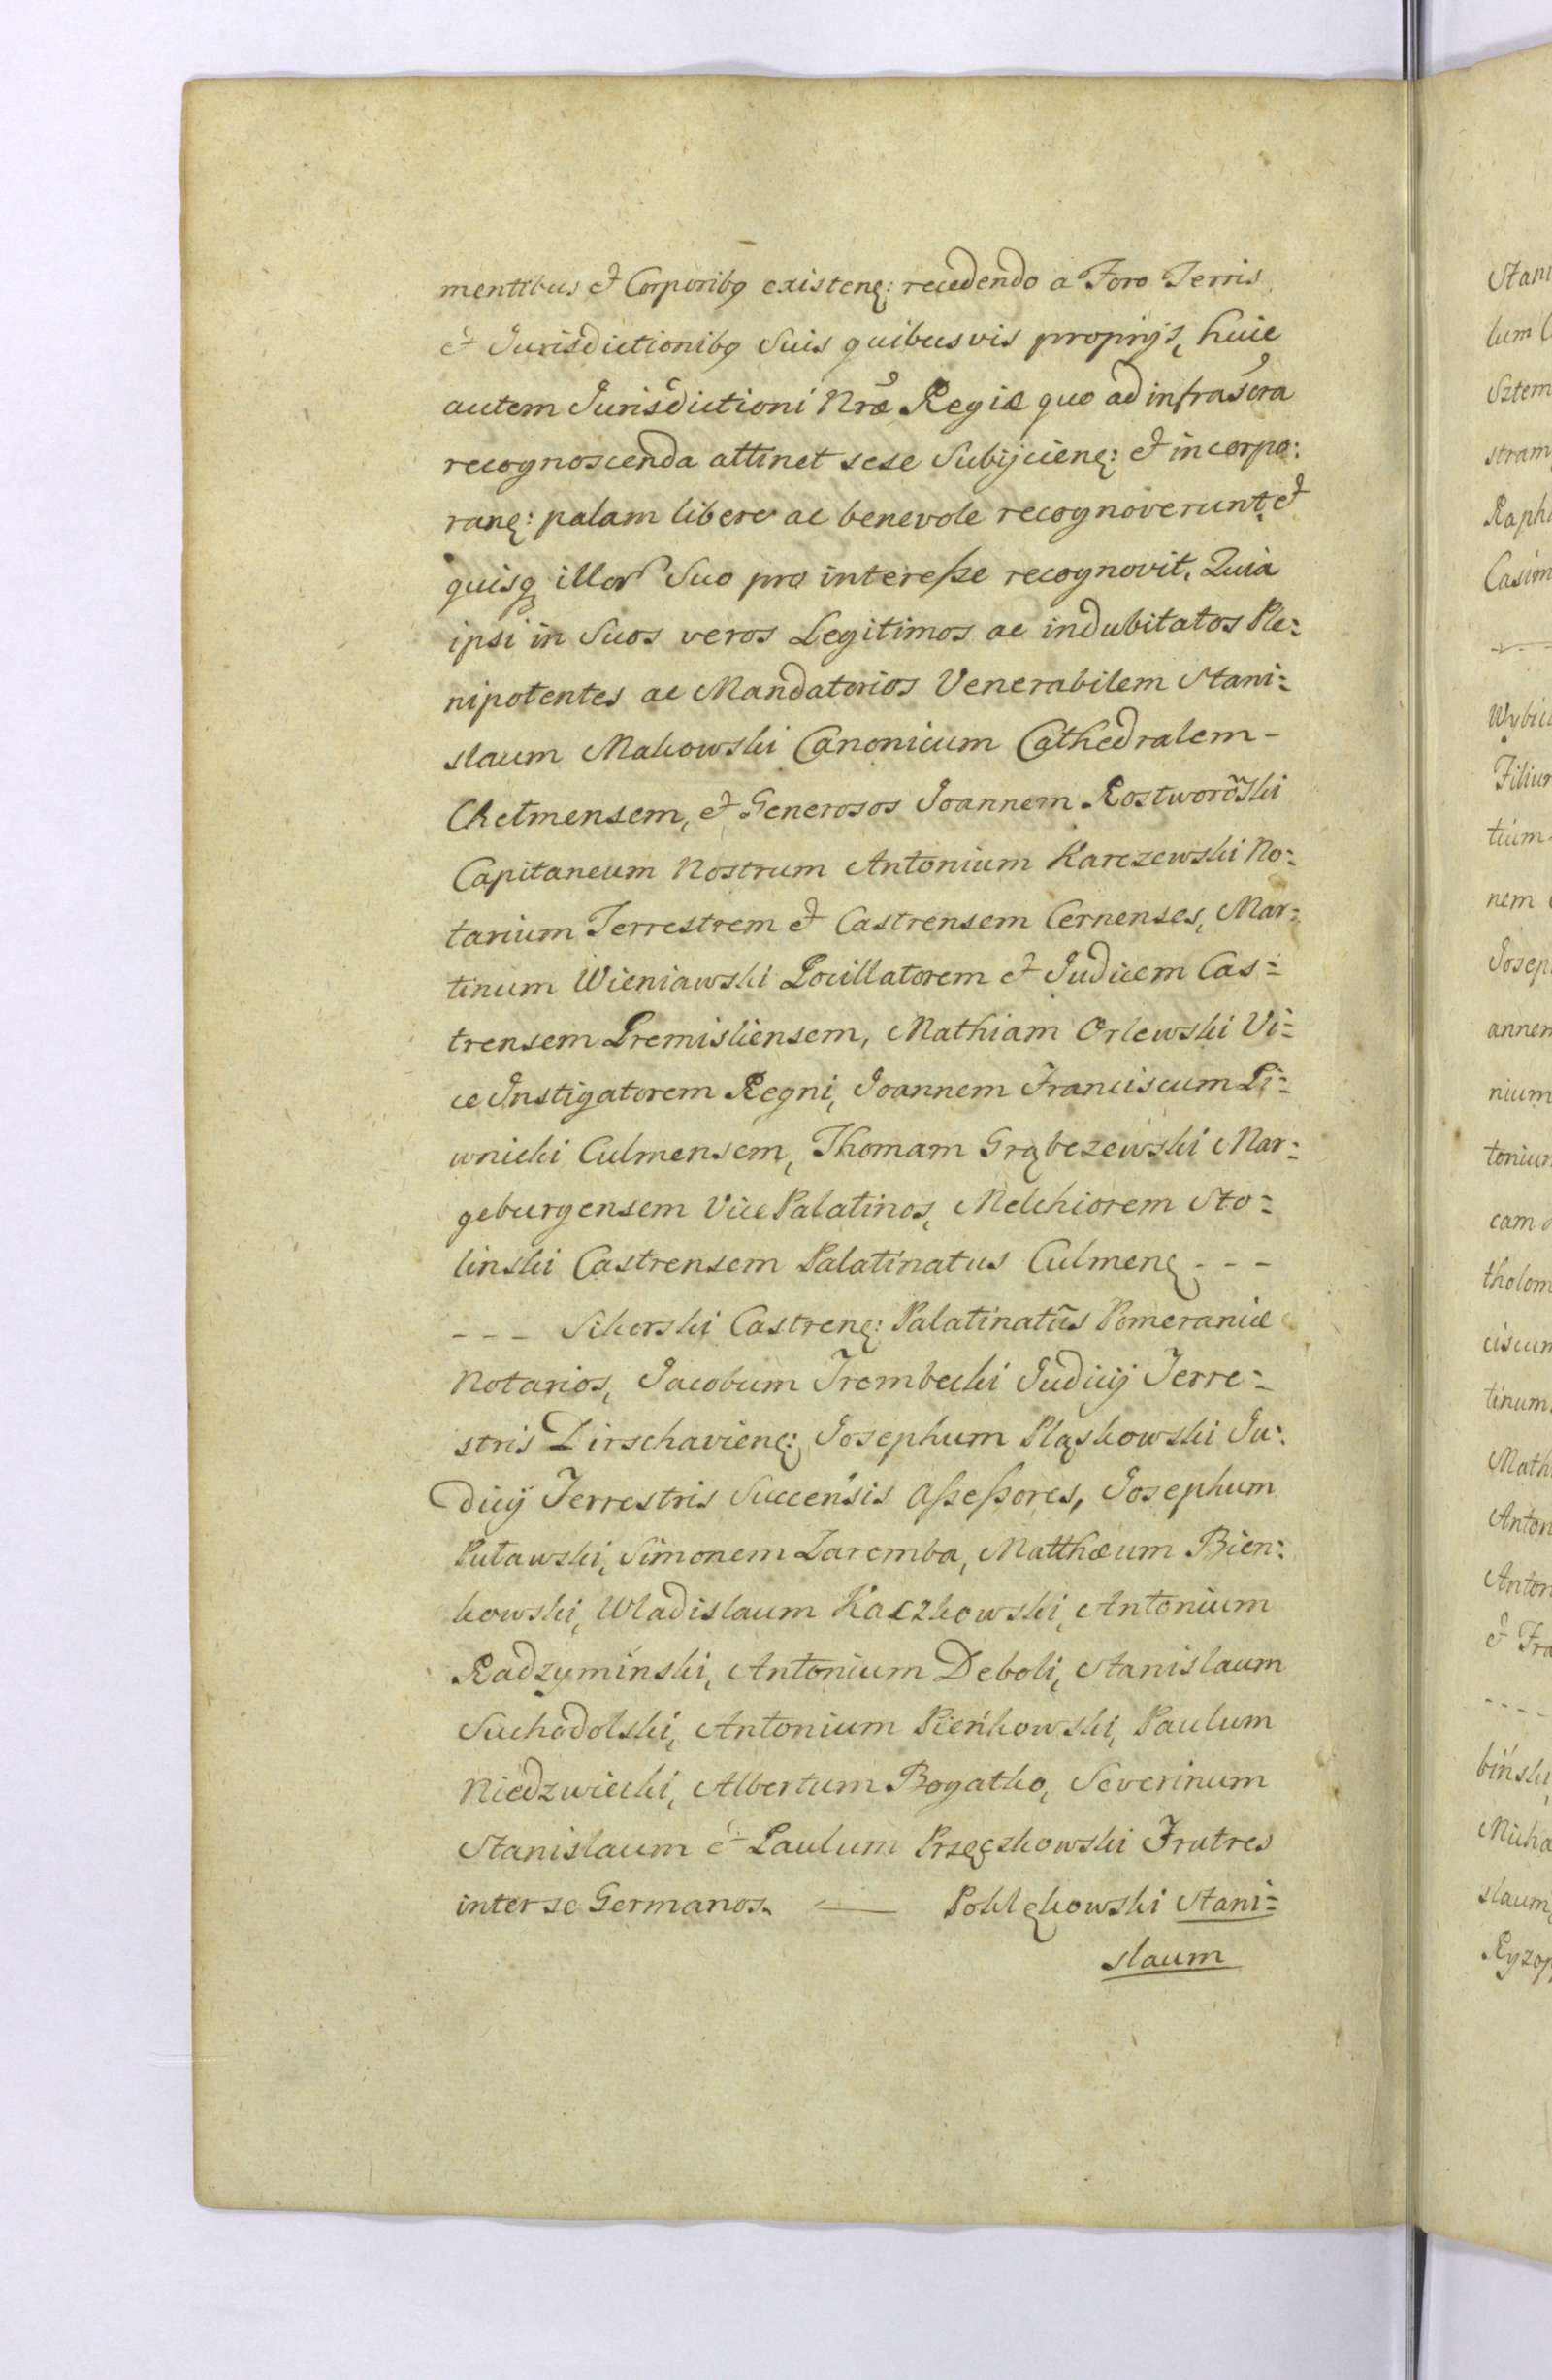 mentibus et Corporibq existenę: recedendo a Foro Terris
et Jurisdictionibq Suis quibusvis proprijs, huic
autem Jurisdictioni Nrae Regiae quo ad infrascra
recognoscenda attinet sese Subijcienę: et incorpo:
ranę: palam libere ac benevole recognoverunt, et
quisq illor Suo pro interesse recognovit, Quia
ipsi in Suos veros Legitimos ac indubitatos Ple:
nipotentes ac Mandatorios Venerabilem Stani:
slaum Makowski Canonicum Cathedralem -
Chełmensem, et Generosos Joannem Rostworõski
Capitaneum Nostrum Antonium Karczewski No:
tarium Terrestrem et Castrensem Cernenses, Mar:
tinum Wieniawski Pocillatorem et Judicem Cas:
trensem Premisliensem, Mathiam Orlewski Vi:
ce Instigatorem Regni, Joannem Franciscum Pi:
wnicki Culmensem, Thomam Grąbczewski Mar:
geburgensem Vice Palatinos, Melchiorem Sto:
linski Castrensem Palatinatus Culmenę - - -
- - - Sikorski Castrenę: Palatinatûs Pomeraniae
Notarios, Jacobum Trembecki Judicij Terre:
stris Dirschavienę: Josephum Pląskowski Ju:
dicij Terrestris Succensis Assessores, Josephum
Puławski, Simonem Zaremba, Matthaeum Bien:
kowski, Wladislaum Kaczkowski, Antonium
Radzyminski, Antonium Deboli, Stanislaum
Suchodolski, Antonium Pieńkowski, Paulum
Niedzwiecki, Albertum Bogatko, Severinum
Stanislaum et Paulum Przęczkowski Fratres
inter se Germanos. — Pokłękowski Stani:
slaum